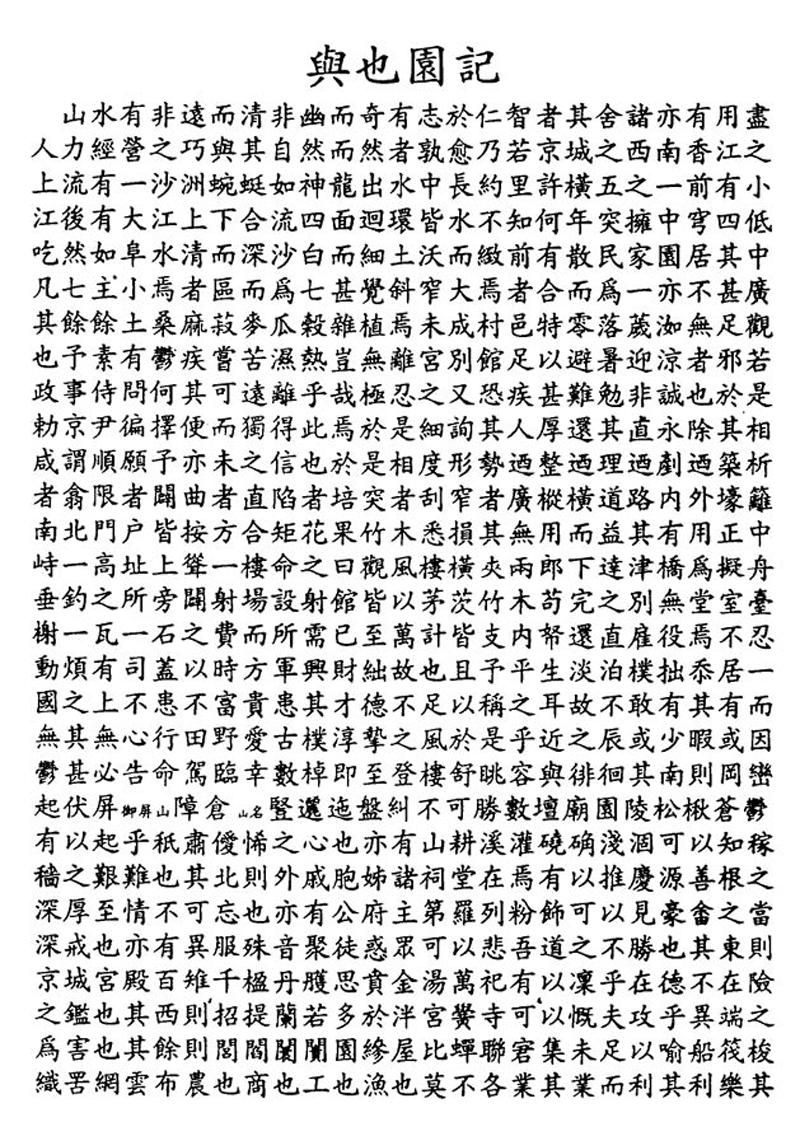 與也園記
山水有非遠而清非幽而奇有志於仁智者其舍諸亦有用盡
人力經營之巧與其自然而然者孰愈乃若京城之西南香江之
上流有一沙洲蜿蜒如神龍出水中長約里許橫五之一前有小
江後有大江上下合流四面迴環皆水不知何年突擁中穹四低
吃然如阜水清而深沙白而細土沃而緻前有散民家園居其中
凡七主小焉者區而爲七甚覺斜窄大焉者合而爲一亦不甚廣
其餘餘土桑麻菽麥瓜穀雜植焉未成村邑特零落蕆洳無足觀
也予素有鬱疾嘗苦濕熱豈無離宮別館足以避暑迎涼者邪若
政事侍問何其可遠離乎哉極忍之又恐疾甚難勉非誠也於是
勅京尹徧擇便而獨得此焉於是細詢其人厚還其直永除其相
咸謂順願予亦未之信也於是相度形勢迺整迺理迺劃迺築析
者翕限者闢曲者直陷者培突者刮窄者廣樅橫道路内外壕籬
南北門户皆按方合矩花果竹木悉損其無用而益其有用正中
峙一高址上聳一樓命之曰觀風樓橫夾兩郎下達津橋爲擬舟
垂釣之所旁闢射場設射館皆以茅茨竹木苟完之別無堂室臺
榭一瓦一石之費而所需已至萬計皆支内帑還直雇役焉不忍
動煩有司蓋以時方軍興財絀故也且予平生淡泊樸拙忝居一
國之上不患不富貴患其才德不足以稱之耳故不敢有其有而
無其無心行田野愛古樸淳摯之風於是乎近之辰或少暇或因
鬱甚必告命駕臨幸數棹即至登樓舒眺容與徘徊其南則岡巒
起伏屏御屏山障倉山名竪邐迤盤糾不可勝數壇廟園陵松楸蒼鬱
有以起乎秪肅優悕之心也亦有山耕溪灌磽确淺涸可以知稼
穡之艱難也其北則外戚胞姊諸祠堂在焉有以推慶源善根之
深厚至情不可忘也亦有公府主第羅列粉飾可以見豪奢之當
深戒也亦有異服殊音聚徒惑眾可以悲吾道之不勝也其東則
京城宮殿百雉千楹丹雘思賁金湯萬祀有以凜乎在德不在險
之鑑也其西則招提蘭若多於泮宮黌寺可以慨夫攻乎異端之
爲害也其餘則閭閻闤闠園絳屋比蟬聯窘集未足以喻船筏梭
織罟網雲布農也商也工也漁也莫不各業其業而利其利樂其